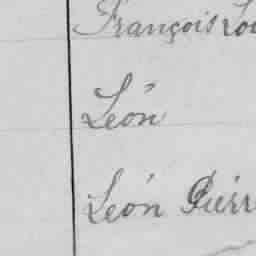 François Lou
Léon
Léon Pierr